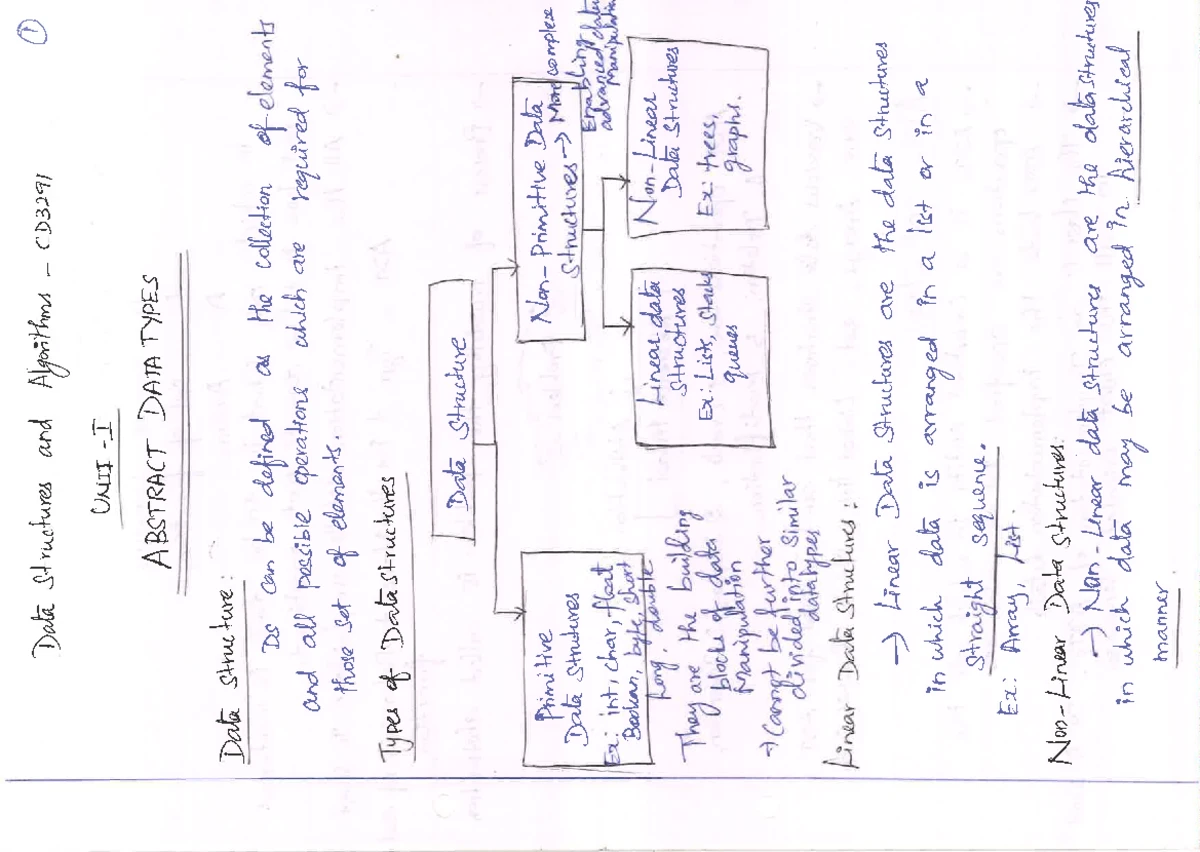 ①
Data Structures and Algorithms - CD3291
UNIT - I
ABSTRACT DATA TYPES
Data Structure:
DS can be defined as the collection of elements
and all possible operations which are required for
those set of elements.
Types of Data Structures
Data Structure
Primitive
Data Strutures
Ex: int, char, float
Boolean, byte, short
Long, double
They are the building
blocks of data
Manipulation
→ Cannot be further
divided into similar
datatypes
Non-Primitive Data
Structures → More complex
Enabling
advanced data
Manipulation
Linear data
Structures
Ex: Lists, Stacks
queues
Non-Linear
Data Structures
Ex: trees,
graphs.
Linear Data Structures:
→ Linear Data Structures are the data structures
in which data is arranged in a list or in a
straight sequence.
Ex: Array, List.
Non-Linear Data Structures:
→ Non-Linear data structures are the data structures
in which data may be arranged in hierarchical
manner.